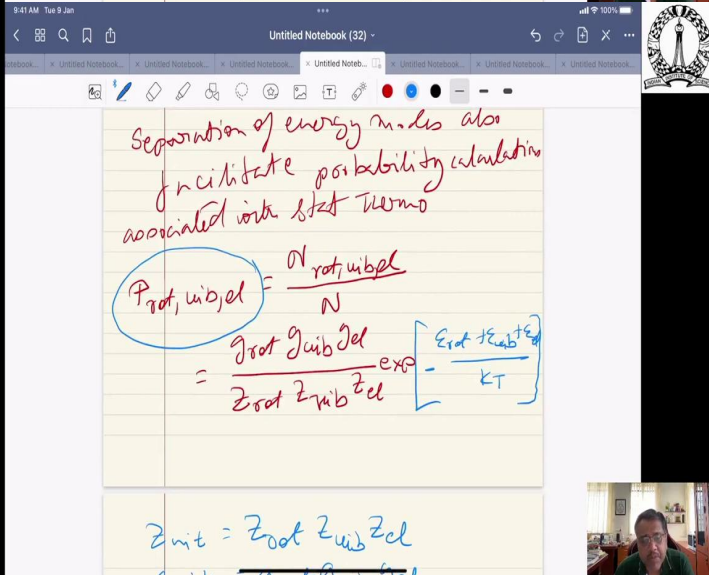 9:41 AM Tue 9 Jan
100%
Untitled Notebook (32)
otebook... × Untitled Notebook... × Untitled Notebook... × Untitled Notebook... × Untitled Noteb... × Untitled Notebook... × Untitled Notebook... × Untitled Notebook...
Separation of energy modes also
facilitate probability calculations
associated with stat Thermo
P rot, vib, el = N rot, vib, el / N
= g rot g vib g el / Z rot Z vib Z el exp [ - ε rot + ε vib + ε el / KT ]
Z int = Z rot Z vib Z el